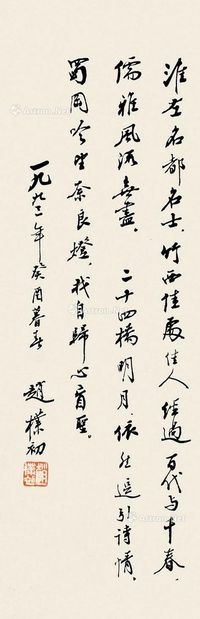 淮左名都名士，竹西佳處佳人。經過百代与千春，
儒雅風流無盡。 二十四橋明月，依然逗引詩情，
蜀岡吟望奈良燈，我自歸心盲聖。
一九九三年癸酉暮春 趙樸初